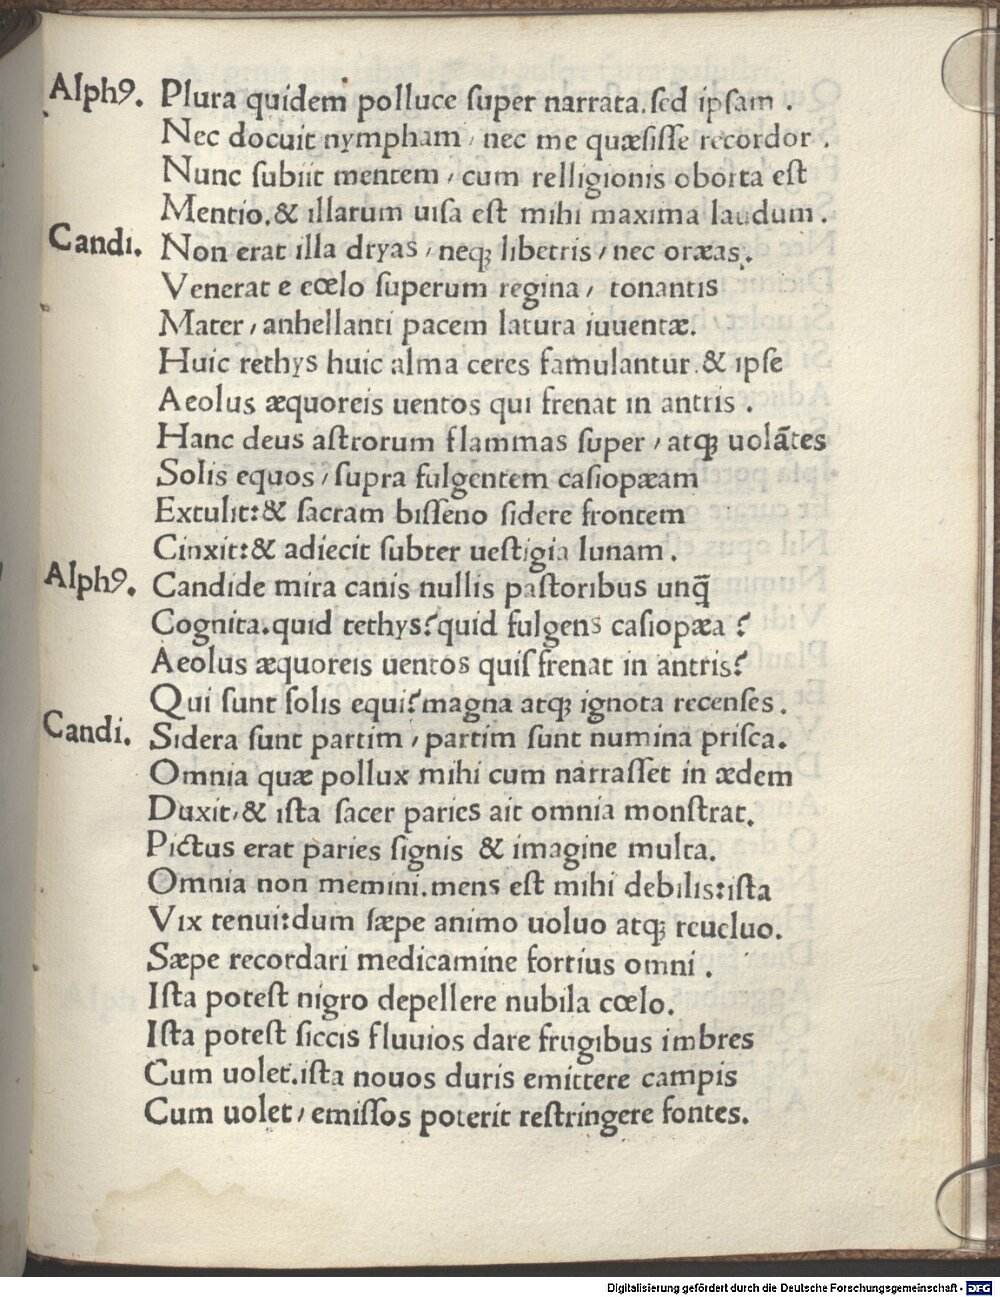 Alphꝰ. Plura quidem polluce ſuper narrata.ſed ipſam .
Nec docuit nympham / nec me quæſiſſe recordor .
Nunc ſubiit mentem / cum relligionis oborta eſt
Mentio.& illarum uiſa eſt mihi maxima laudum .
Candi. Non erat illa dryas / neqꝫ libetris / nec oræas.
Venerat e cœlo ſuperum regina / tonantis
Mater / anhellanti pacem latura iuuentæ.
Huic tethys huic alma ceres famulantur.& ipſe
Aeolus æquoreis uentos qui frenat in antris .
Hanc deus aſtrorum flammas ſuper / atqꝫ uolātes
Solis equos / ſupra fulgentem caſiopæam
Extulit:& ſacram biſſeno ſidere frontem
Cinxit:& adiecit ſubter ueſtigia lunam .
Alphꝰ. Candide mira canis nullis paſtoribus unq̄
Cognita.quid tethys?quid fulgens caſiopæa ?
Aeolus æquoreis uentos quiſ frenat in antris?
Qui ſunt ſolis equi?magna atqꝫ ignota recenſes .
Candi. Sidera ſunt partim / partim ſunt numina priſca.
Omnia quæ pollux mihi cum narraſſet in ædem
Duxit/& iſta ſacer paries ait omnia monſtrat.
Pictus erat paries ſignis & imagine multa.
Omnia non memini.mens eſt mihi debilis:iſta
Vix tenui:dum ſæpe animo uoluo atqꝫ reuoluo.
Sæpe recordari medicamine fortius omni .
Iſta poteſt nigro depellere nubila cœlo.
Iſta poteſt ſiccis fluuios dare frugibus imbres
Cum uolet.iſta nouos duris emittere campis
Cum uolet / emiſſos poterit reſtringere fontes.
Digitalisierung gefördert durch die Deutsche Forschungsgemeinschaft - DFG